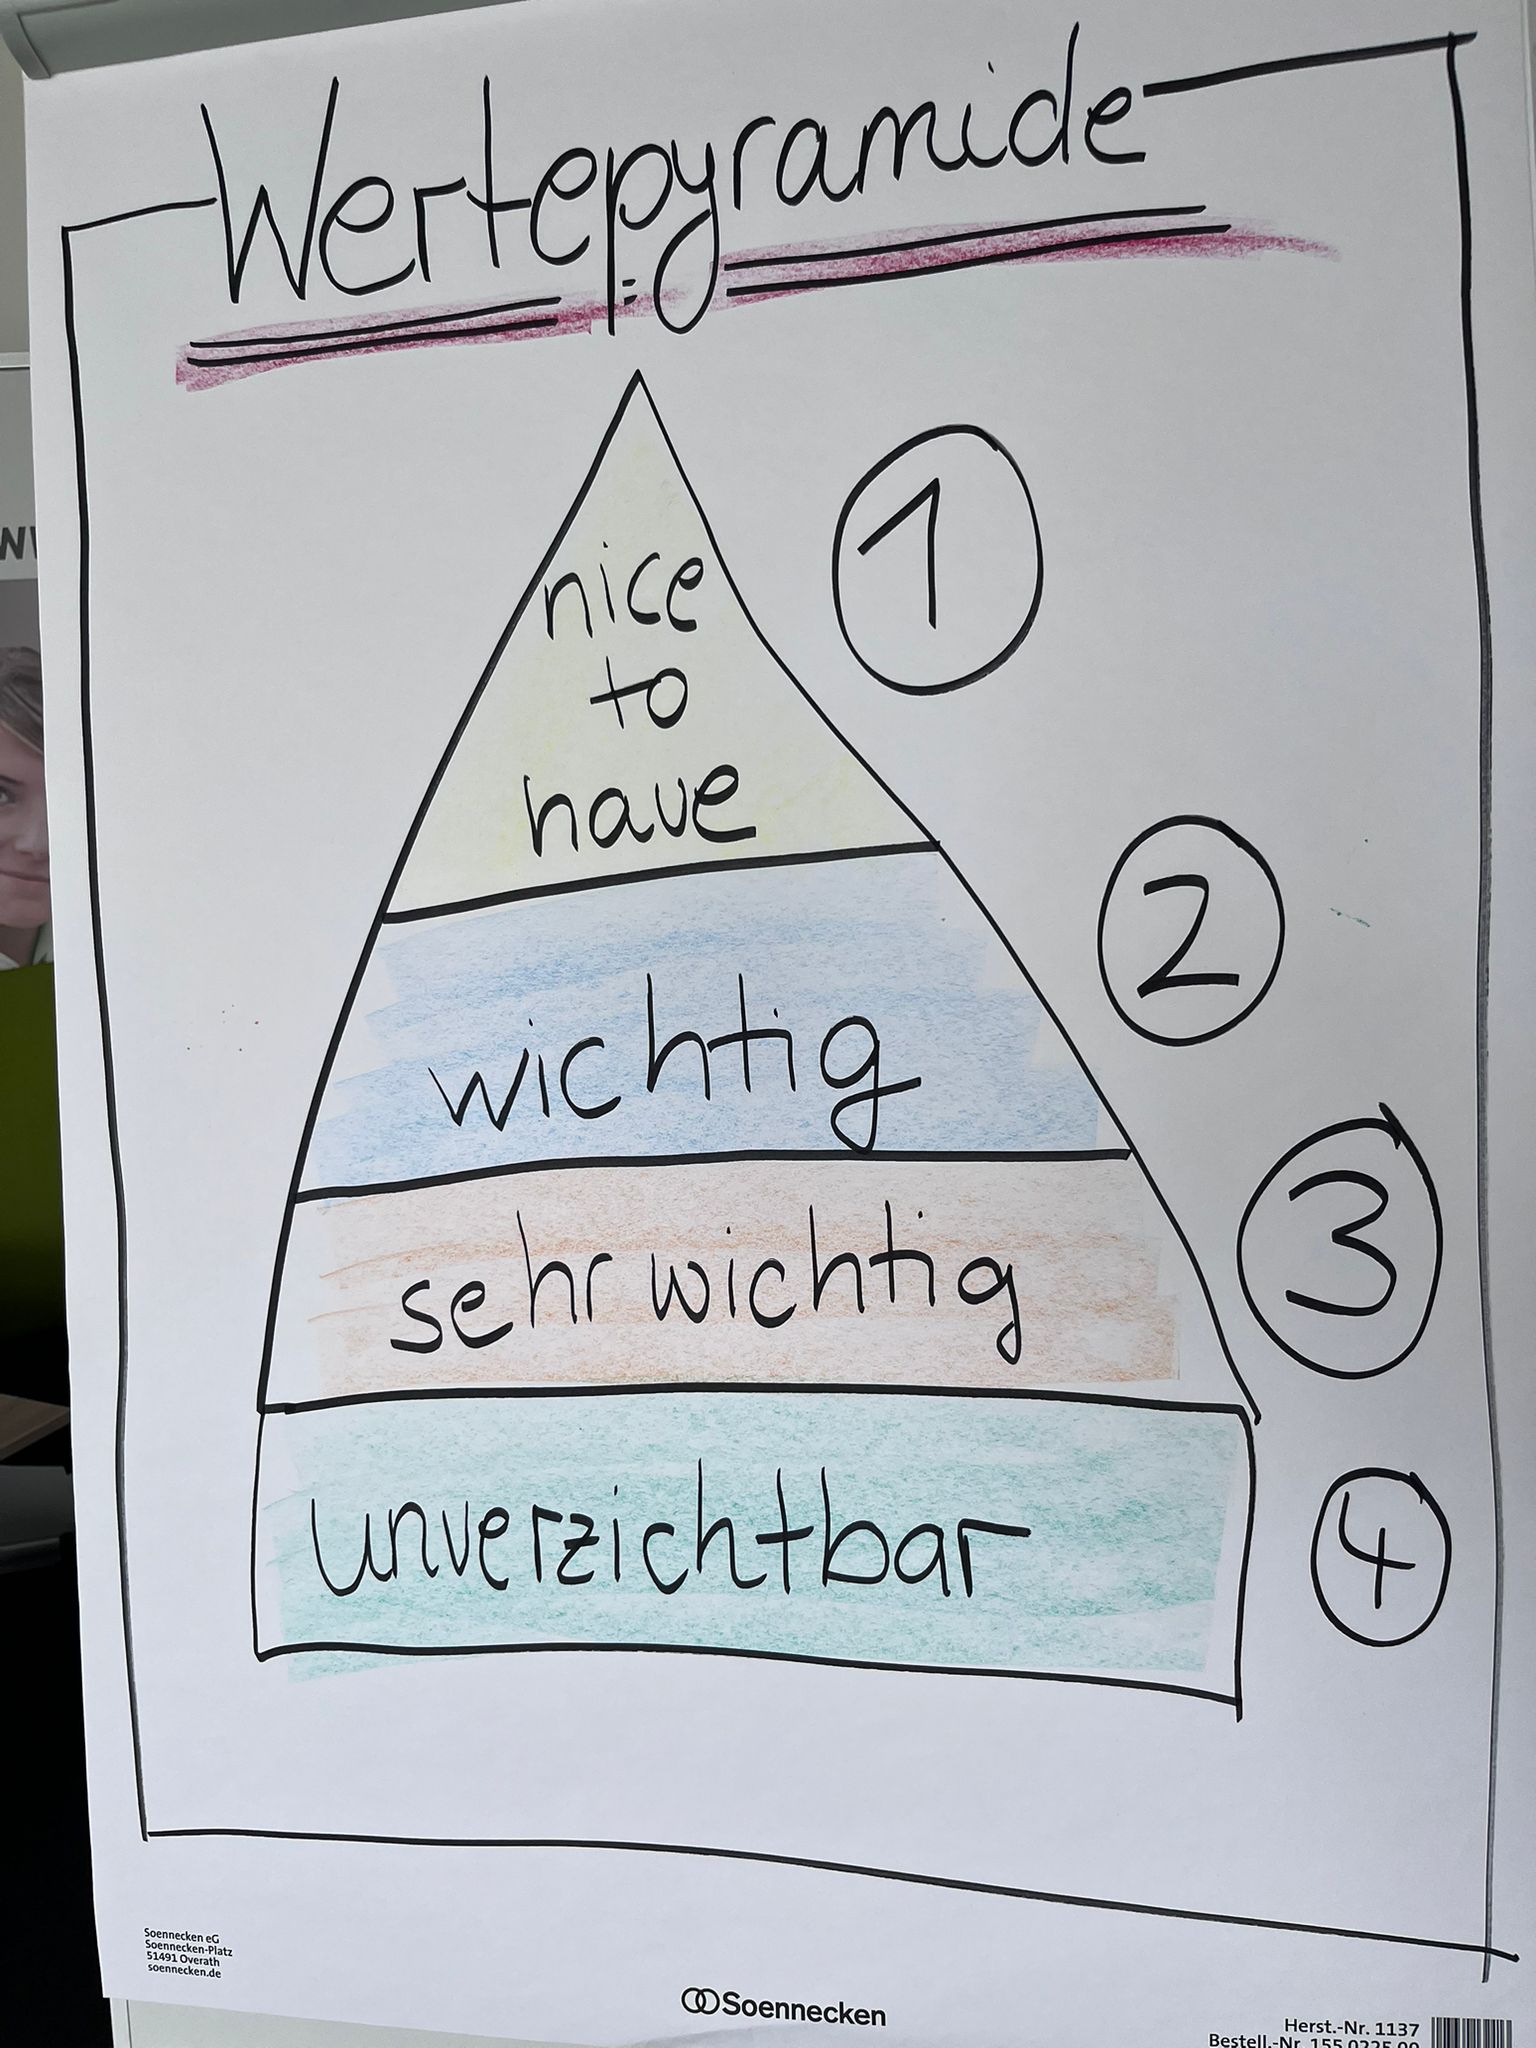 Wertepyramide
nice
to
have
1
wichtig
2
sehr wichtig
3
unverzichtbar
4
Soennecken eG
Soennecken-Platz
51491 Overath
soennecken.de
Soennecken
Herst.-Nr. 1137
Bestell.-Nr. 155.0225.00